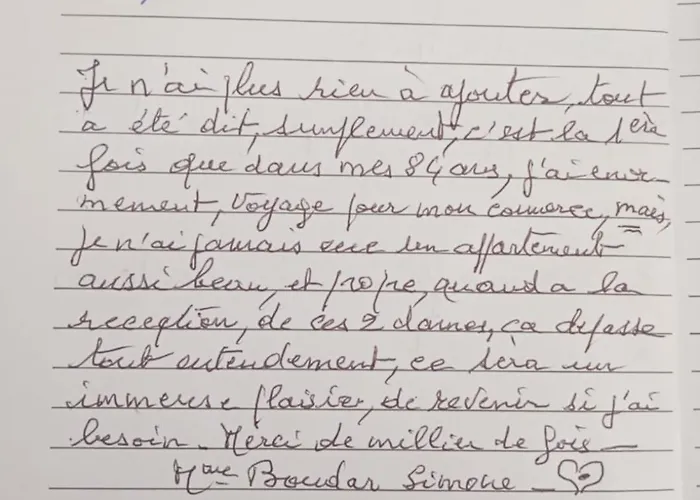 Je n'ai plus rien à ajouter, tout
a été dit, simplement, c'est la 1erà
fois que dans mes 84 ans, j'ai enor-
mement, voyage pour mon comerce, mais,
Je n'ai jamais eue un appartement
aussi beau, et propre, quand a la
reception, de ces 2 dames, ça depasse
tout entendement, ce sera un
immense plaisir, de revenir si j'ai
besoin. Merci de millier de fois —
Mme Boudar Simone —